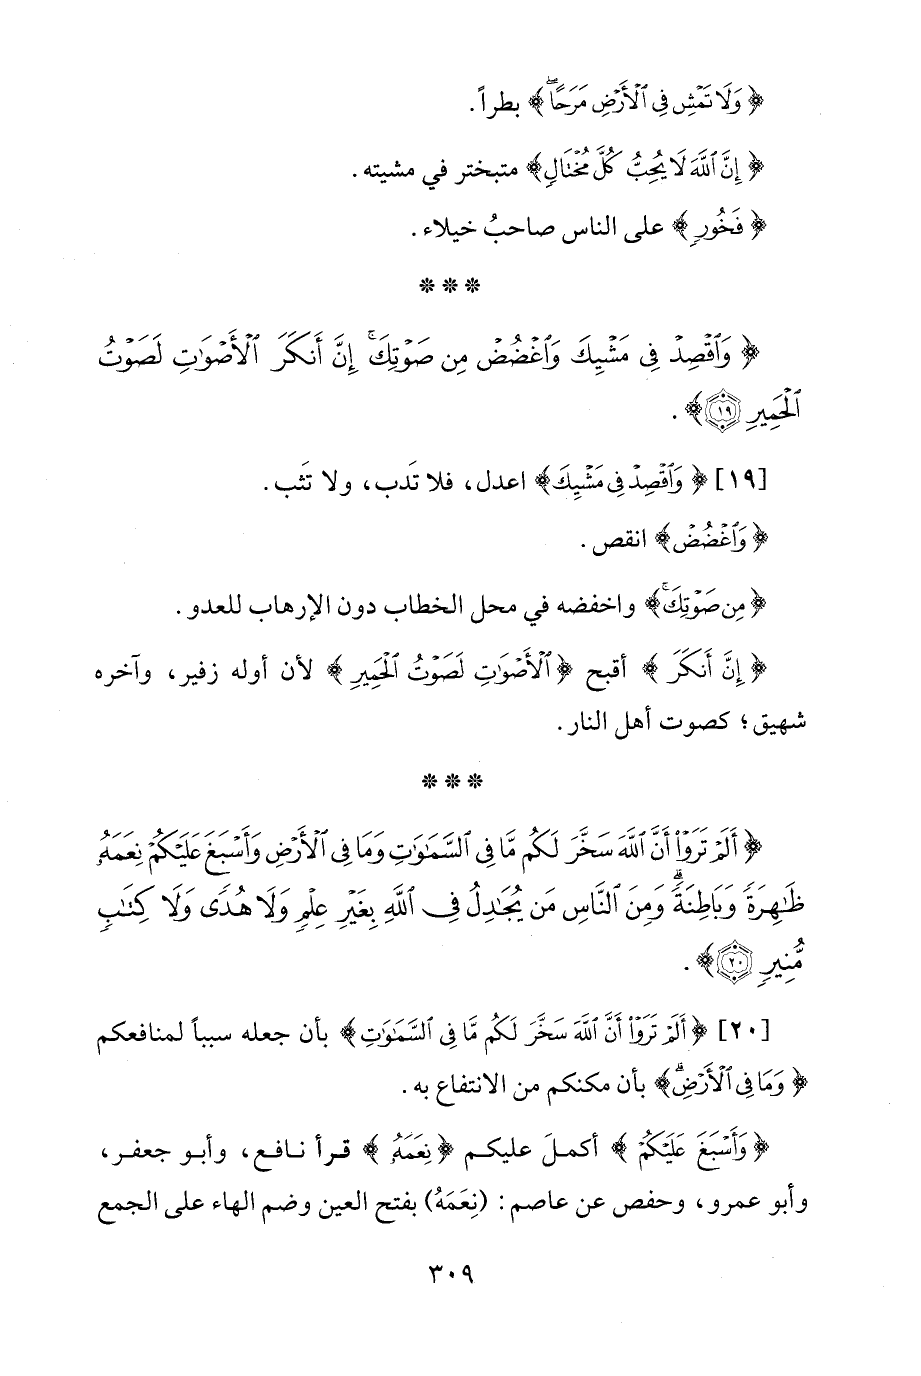 ﴿ وَلَا تَمْشِ فِى ٱلْأَرْضِ مَرَحًاۖ ﴾ بطراً.
﴿ إِنَّ ٱللَّهَ لَا يُحِبُّ كُلَّ مُخْتَالٍ ﴾ متبختر في مشيته.
﴿ فَخُورٍ ﴾ على الناس صاحبُ خيلاء.
* * *
﴿ وَٱقْصِدْ فِى مَشْيِكَ وَٱغْضُضْ مِن صَوْتِكَۚ إِنَّ أَنكَرَ ٱلْأَصْوَٰتِ لَصَوْتُ
ٱلْحَمِيرِ ١٩ ﴾.
[١٩] ﴿ وَٱقْصِدْ فِى مَشْيِكَ ﴾ اعدل، فلا تَدب، ولا تَثب.
﴿ وَٱغْضُضْ ﴾ انقص.
﴿ مِن صَوْتِكَۚ ﴾ واخفضه في محل الخطاب دون الإرهاب للعدو.
﴿ إِنَّ أَنكَرَ ﴾ أقبح ﴿ ٱلْأَصْوَٰتِ لَصَوْتُ ٱلْحَمِيرِ ﴾ لأن أوله زفير، وآخره
شهيق؛ كصوت أهل النار.
* * *
﴿ أَلَمْ تَرَوْا۟ أَنَّ ٱللَّهَ سَخَّرَ لَكُم مَّا فِى ٱلسَّمَٰوَٰتِ وَمَا فِى ٱلْأَرْضِ وَأَسْبَغَ عَلَيْكُمْ نِعَمَهُۥ
ظَٰهِرَةً وَبَاطِنَةًۗ وَمِنَ ٱلنَّاسِ مَن يُجَٰدِلُ فِى ٱللَّهِ بِغَيْرِ عِلْمٍ وَلَا هُدًى وَلَا كِتَٰبٍ
مُّنِيرٍ ٢٠ ﴾.
[٢٠] ﴿ أَلَمْ تَرَوْا۟ أَنَّ ٱللَّهَ سَخَّرَ لَكُم مَّا فِى ٱلسَّمَٰوَٰتِ ﴾ بأن جعله سبباً لمنافعكم
﴿ وَمَا فِى ٱلْأَرْضِۗ ﴾ بأن مكنكم من الانتفاع به.
﴿ وَأَسْبَغَ عَلَيْكُمْ ﴾ أكملَ عليكم ﴿ نِعَمَهُۥ ﴾ قرأ نافع، وأبو جعفر،
وأبو عمرو، وحفص عن عاصم: (نِعَمَهُ) بفتح العين وضم الهاء على الجمع
٣٠٩